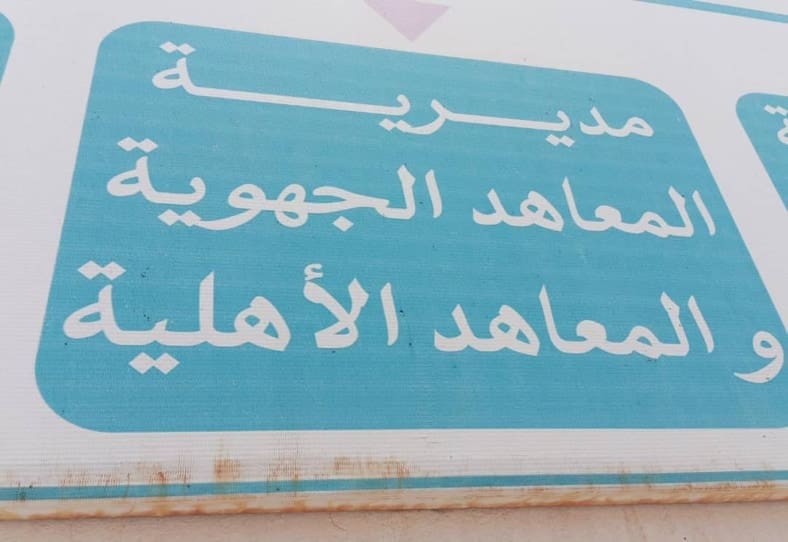 مديرية
المعاهد الجهوية
و المعاهد الأهلية